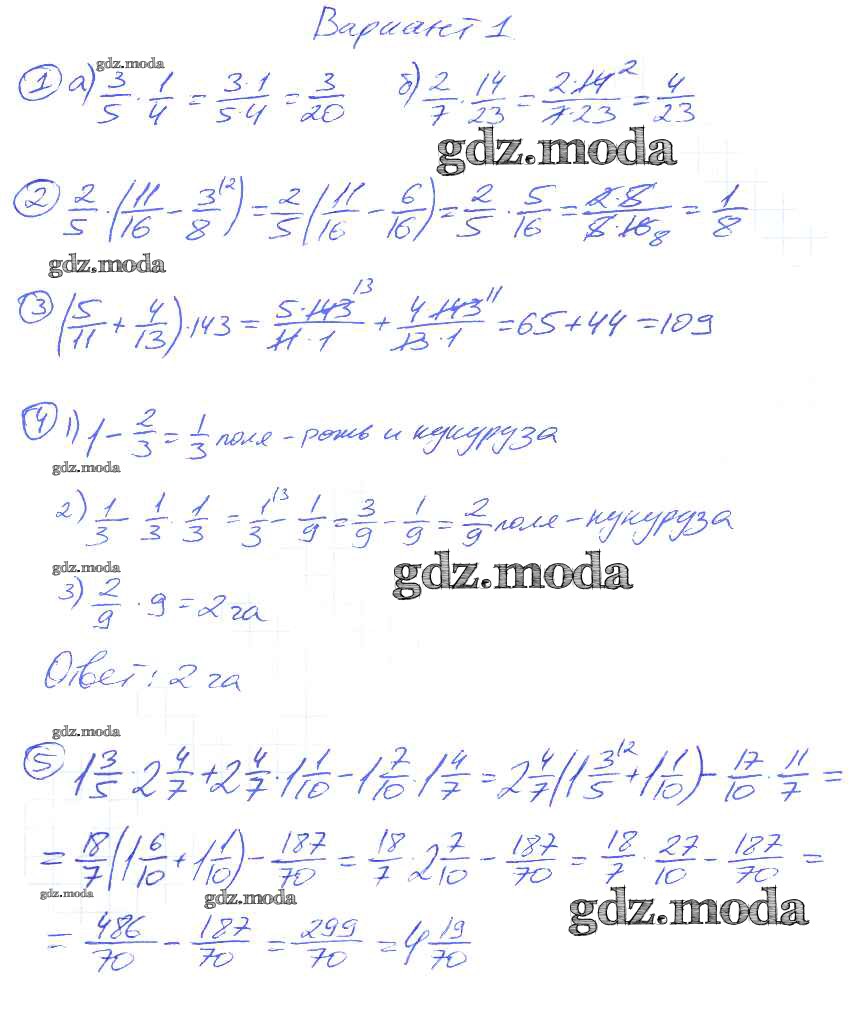 Вариант 1
gdz.moda
① а) 3/5 · 1/4 = 3·1/5·4 = 3/20 б) 2/7 · 14/23 = 2·14²/7·23 = 4/23
gdz.moda
② 2/5 · (11/16 - 3/8^(2) = 2/5 (11/16 - 6/16) = 2/5 · 5/16 = 2·5/5·16 8 = 1/8
gdz.moda
③ (5/11 + 4/13) · 143 = 5·143 13/11·1 + 4·143 11/13·1 = 65 + 44 = 109
④ 1) 1 - 2/3 = 1/3 поля - рожь и кукуруза
gdz.moda
2) 1/3 - 1/3 · 1/3 = 1/3^(3 - 1/9 = 3/9 - 1/9 = 2/9 поля - кукуруза
gdz.moda
gdz.moda
3) 2/9 · 9 = 2 га
Ответ: 2 га
gdz.moda
⑤ 1 3/5 · 2 4/7 + 2 4/7 · 1 1/10 - 1 7/10 · 1 4/7 = 2 4/7 (1 3/5^(2 + 1 1/10) - 17/10 · 11/7 =
= 18/7 (1 6/10 + 1 1/10) - 187/70 = 18/7 · 2 7/10 - 187/70 = 18/7 · 27/10 - 187/70 =
gdz.moda
gdz.moda
gdz.moda
= 486/70 - 187/70 = 299/70 = 4 19/70